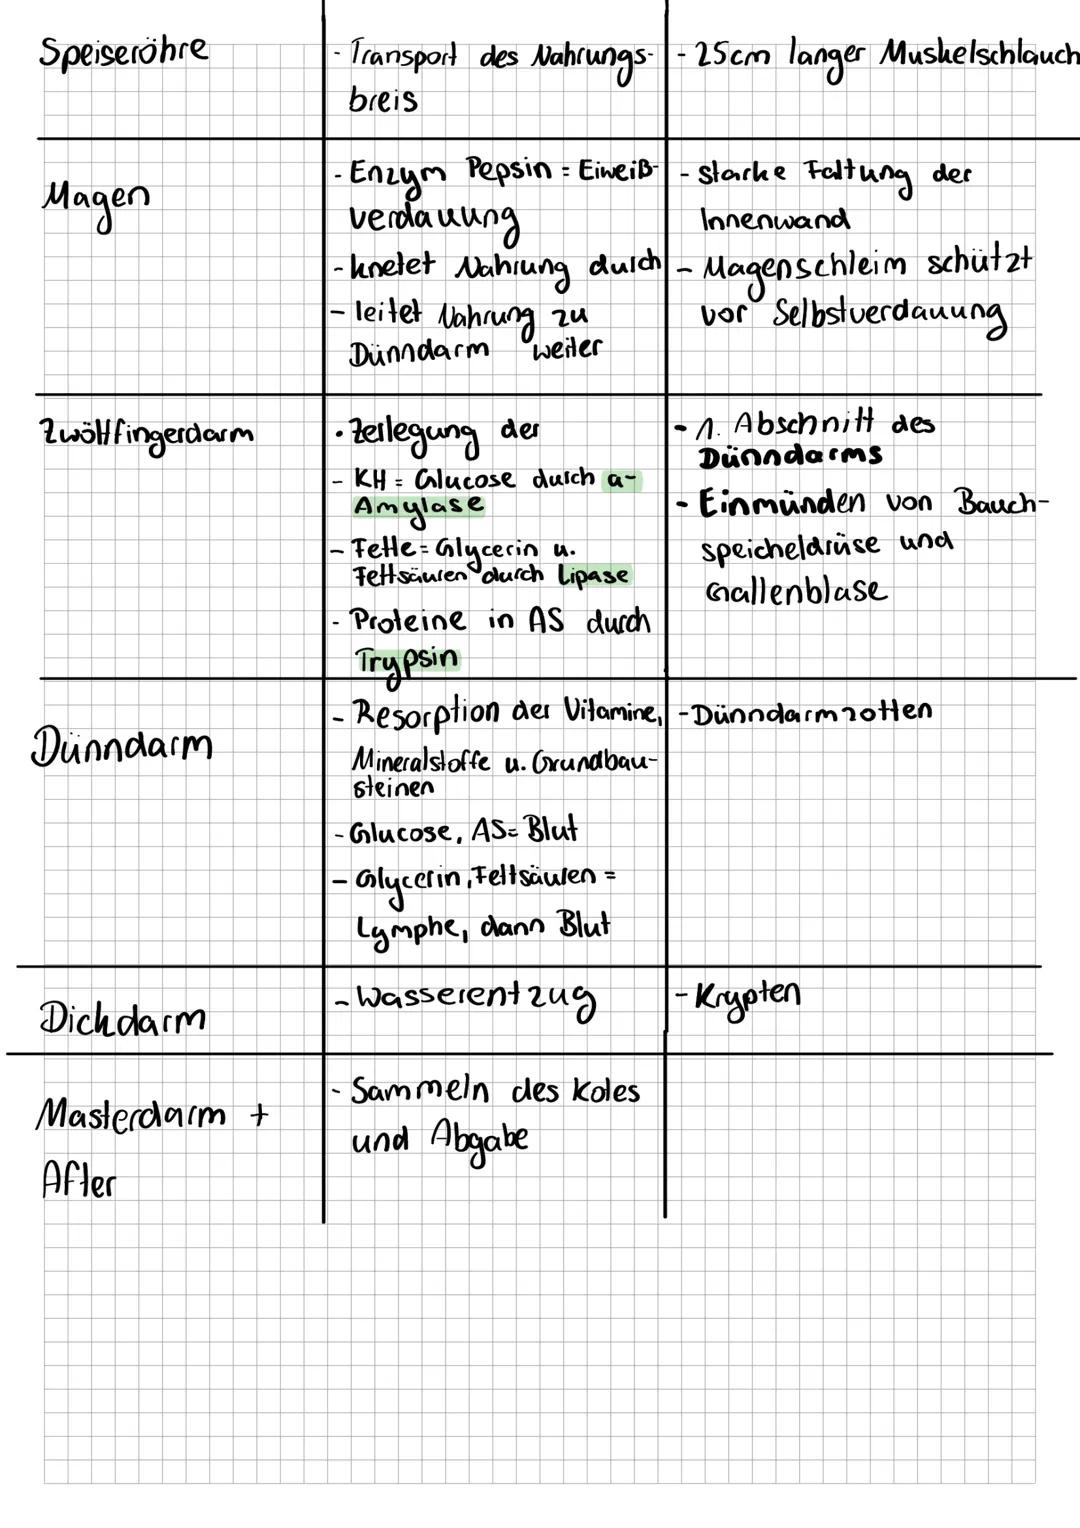 Speiseröhre
- Transport des Nahrungs-
breis
- 25cm langer Muskelschlauch
Magen
- Enzym Pepsin = Eiweiß-
verdauung
- knetet Nahrung durch
- leitet Nahrung zu
Dünndarm weiter
- starke Faltung der
Innenwand
- Magenschleim schützt
vor Selbstverdauung
Zwölffingerdarm
· Zerlegung der
- KH = Glucose durch a-
Amylase
- Fette = Glycerin u.
Fettsäuren durch Lipase
- Proteine in AS durch
Trypsin
- 1. Abschnitt des
Dünndarms
- Einmünden von Bauch-
speicheldrüse und
Gallenblase
Dünndarm
- Resorption der Vitamine,
Mineralstoffe u. Grundbau-
steinen
- Glucose, AS = Blut
- Glycerin, Fettsäuren =
Lymphe, dann Blut
- Dünndarmzotten
Dickdarm
- Wasserentzug
- Krypten
Masterdarm +
After
- Sammeln des Kotes
und Abgabe